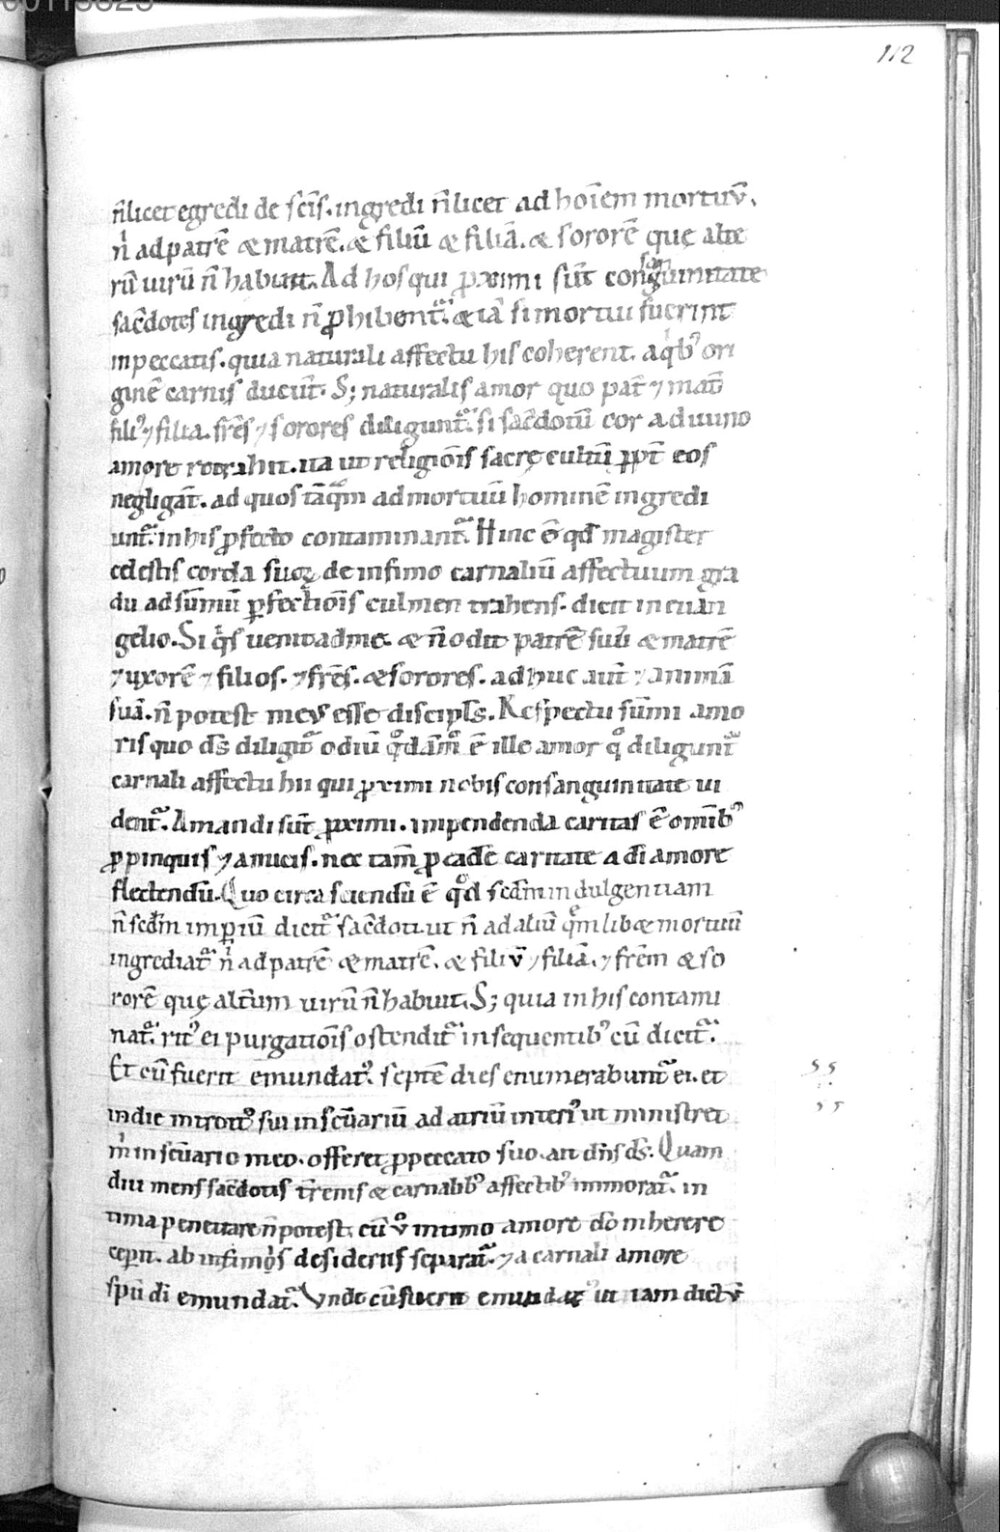 112
n̄ licet egredi de sc̄is. ingredi n̄ licet ad hoīem mortuū.
n̄ ad patrē & matrē. & filiū & filiā. & sororē que alte
rū uirū n̄ habuit. Ad hos qui ꝓximi sūt consanguinitate
sac̄dotes ingredi n̄ ꝓhibent᷑. & iā si mortui fuerint
in peccatis. quia naturali affectu his coherent. a qͥbꝰ ori
ginē carnis ducūt. S; naturalis amor quo pat̄ ⁊ mat̄
filiꝰ ⁊ filia. fr̄es ⁊ sorores diligunt᷑. si sac̄dotū cor a diuino
amore retrahit. ita ut religiōis sacrę cultū ꝓpt̄ eos
negligāt. ad quos tāqᵃm ad mortuū hominē ingredi
unt᷑. in his ꝓfecto contaminant᷑. Hinc ē qđ magister
cęlestis corda suoꝝ de infimo carnaliū affectuum gra
du ad sūmū ꝑfectiōis culmen trahens. dicit in euan
gelio. Si qͥs uenit ad me. & n̄ odit patrē suū & matrē
⁊ uxorē ⁊ filios. ⁊ fr̄es. & sorores. adhuc aūt ⁊ animā
suā. n̄ potest meꝰ esse discipl̄s. Respectu sūmi amo
ris quo d̄s diligit᷑ odiū qͦdāmͦ ē ille amor qͦ diligunt᷑
carnali affectu hii qui ꝓximi nobis consanguinitate ui
dent᷑. Amandi sūt ꝓximi. impendenda caritas ē om̄ibꝰ
ꝓpinquis ⁊ amicis. nec tam̄ ꝓ eadē caritate a d̄i amore
flectendū. Quo circa sciendū ē qͦd scd̄m indulgentiam
n̄ scd̄m imꝑiū dicit᷑ sac̄doti. ut n̄ ad aliū qͦmlib& mortuū
ingrediat᷑ nͥ ad patrē & matrē. & filiū ⁊ filiā. ⁊ frēm & so
rorē quę alt̄um uirū n̄ habuit. S; quia in his contami
nat᷑. ritꝰ ei purgatiōis ostendit᷑ in sequentibꝰ cū dicit᷑.
Et cū fuerit emundatꝰ. septē dies enumerabunt᷑ ei. et
in die introitꝰ sui in sc̄uariū ad atriū interiꝰ ut ministret
m̄ in sc̄uario meo. offeret ꝓ peccato suo. ait dn̄s d̄s. Quam
diu mens sac̄dotis t̄renis & carnalibꝰ affectibꝰ inmorat᷑. in
tima penetrare n̄ potest. cū ū intimo amore dō inherere
ceꝑit. ab infimis desideriis separat᷑. ⁊ a carnali amore
spū d̄i emundat᷑. Vnde cū fuerit emundatꝰ ut iam dictū